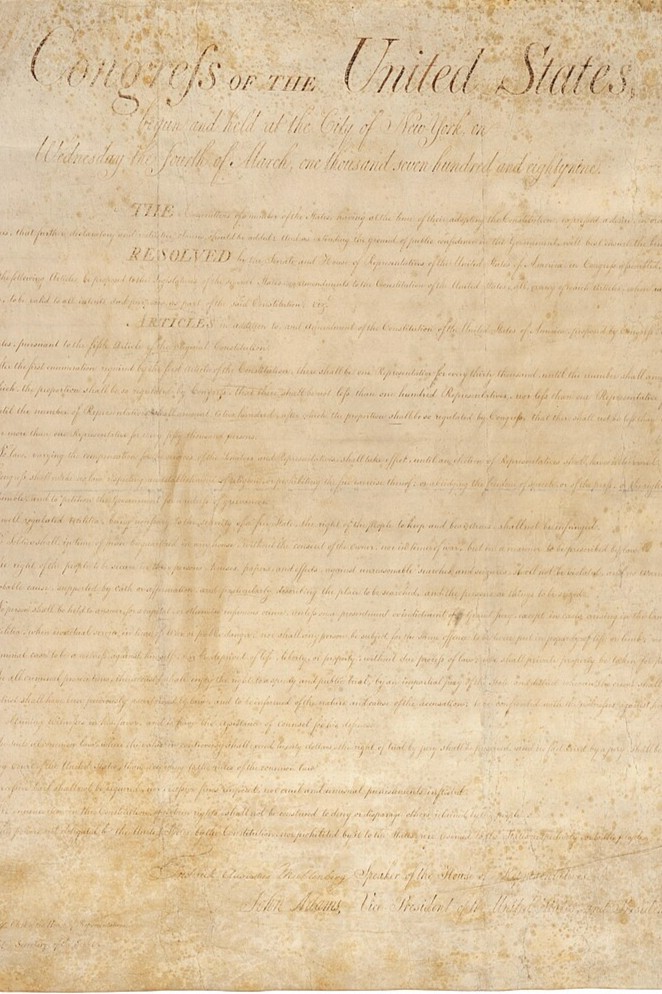 Congreſs OF THE United States,
begun and held at the City of New York, on
Wednesday the Fourth of March, one thousand seven hundred and eighty nine.
THE Conventions of a number of the States, having at the time of their adopting the Constitution, expressed a desire
that further declaratory and restrictive clauses should be added: And as extending the ground of public confidence in the Government, will best ensure the
RESOLVED by the Senate and House of Representatives of the United States of America, in Congress assembled
the following Articles be proposed to the Legislatures of the several States, as amendments to the Constitution of the United States, all, or any of which Articles, when
to be valid to all intents and purposes, as part of the said Constitution; viz.
ARTICLES in addition to, and amendment of the Constitution of the United States of America, proposed by Congress
pursuant to the fifth Article of the original Constitution.
the first enumeration required by the first Article of the Constitution, there shall be one Representative for every thirty thousand, until the number shall
the proportion shall be so regulated by Congress, that there shall be not less than one hundred Representatives, nor less than one Representative
until the number of Representatives shall amount to two hundred, after which the proportion shall be so regulated by Congress, that there shall not be less than
more than one Representative for every fifty thousand persons.
No law, varying the compensation for the services of the Senators and Representatives, shall take effect, until an election of Representatives shall have intervened.
Congress shall make no law respecting an establishment of religion, or prohibiting the free exercise thereof; or abridging the freedom of speech, or of the press; or the right
and to petition the Government for a redress of grievances.
well regulated Militia, being necessary to the security of a free State, the right of the people to keep and bear Arms, shall not be infringed.
Soldier shall, in time of peace be quartered in any house, without the consent of the owner, nor in time of war, but in a manner to be prescribed by law.
right of the people to be secure in their persons, houses, papers, and effects, against unreasonable searches and seizures, shall not be violated, and no
cause, supported by Oath or affirmation, and particularly describing the place to be searched, and the persons or things to be seized.
No person shall be held to answer for a capital, or otherwise infamous crime, unless on a presentment or indictment of a Grand Jury, except in cases arising in the land
when in actual service in time of War or public danger; nor shall any person be subject for the same offence to be twice put in jeopardy of life or limb; nor
case to be a witness against himself, nor be deprived of life, liberty, or property, without due process of law; nor shall private property be taken for
all criminal prosecutions, the accused shall enjoy the right to a speedy and public trial, by an impartial jury of the State and district wherein the crime shall
shall have been previously ascertained by law, and to be informed of the nature and cause of the accusation; to be confronted with the witnesses against
obtaining witnesses in his favor, and to have the assistance of counsel for his defence.
suits at common law, where the value in controversy shall exceed twenty dollars, the right of trial by jury shall be preserved, and no fact tried by a jury shall
Court of the United States, than according to the rules of the common law.
bail shall not be required, nor excessive fines imposed, nor cruel and unusual punishments inflicted.
enumeration in the Constitution, of certain rights, shall not be construed to deny or disparage others retained by the people.
powers not delegated to the United States by the Constitution, nor prohibited by it to the States, are reserved to the States respectively, or to the people.
Frederick Augustus Muhlenberg Speaker of the House of Representatives.
John Adams, Vice President of the United States, and President
Secretary of the Senate.